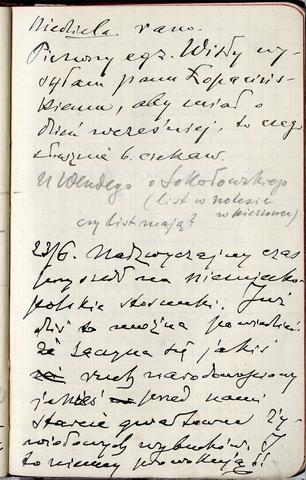 Niedziela rano.
Pierwszy egz. Wisły wy-
syłam panu Łopaciń-
skiemu, aby miał o
dzień wcześniej, to czego
strasznie b. ciekaw.
U Wendego o Sokołowskiego
(list w notesie
w kieszonce)
czy list mają?
23/6. Nadzwyczajny czas
przyszedł na niemiecko-
polskie stosunki. Już
dziś to można powiedzieć
że zaczyna się jakiś
ruch narodowościowy
jakieś przed nami
starcie gwałtowne ży-
wiołowych wybuchów. I
to niemcy prowokują!!